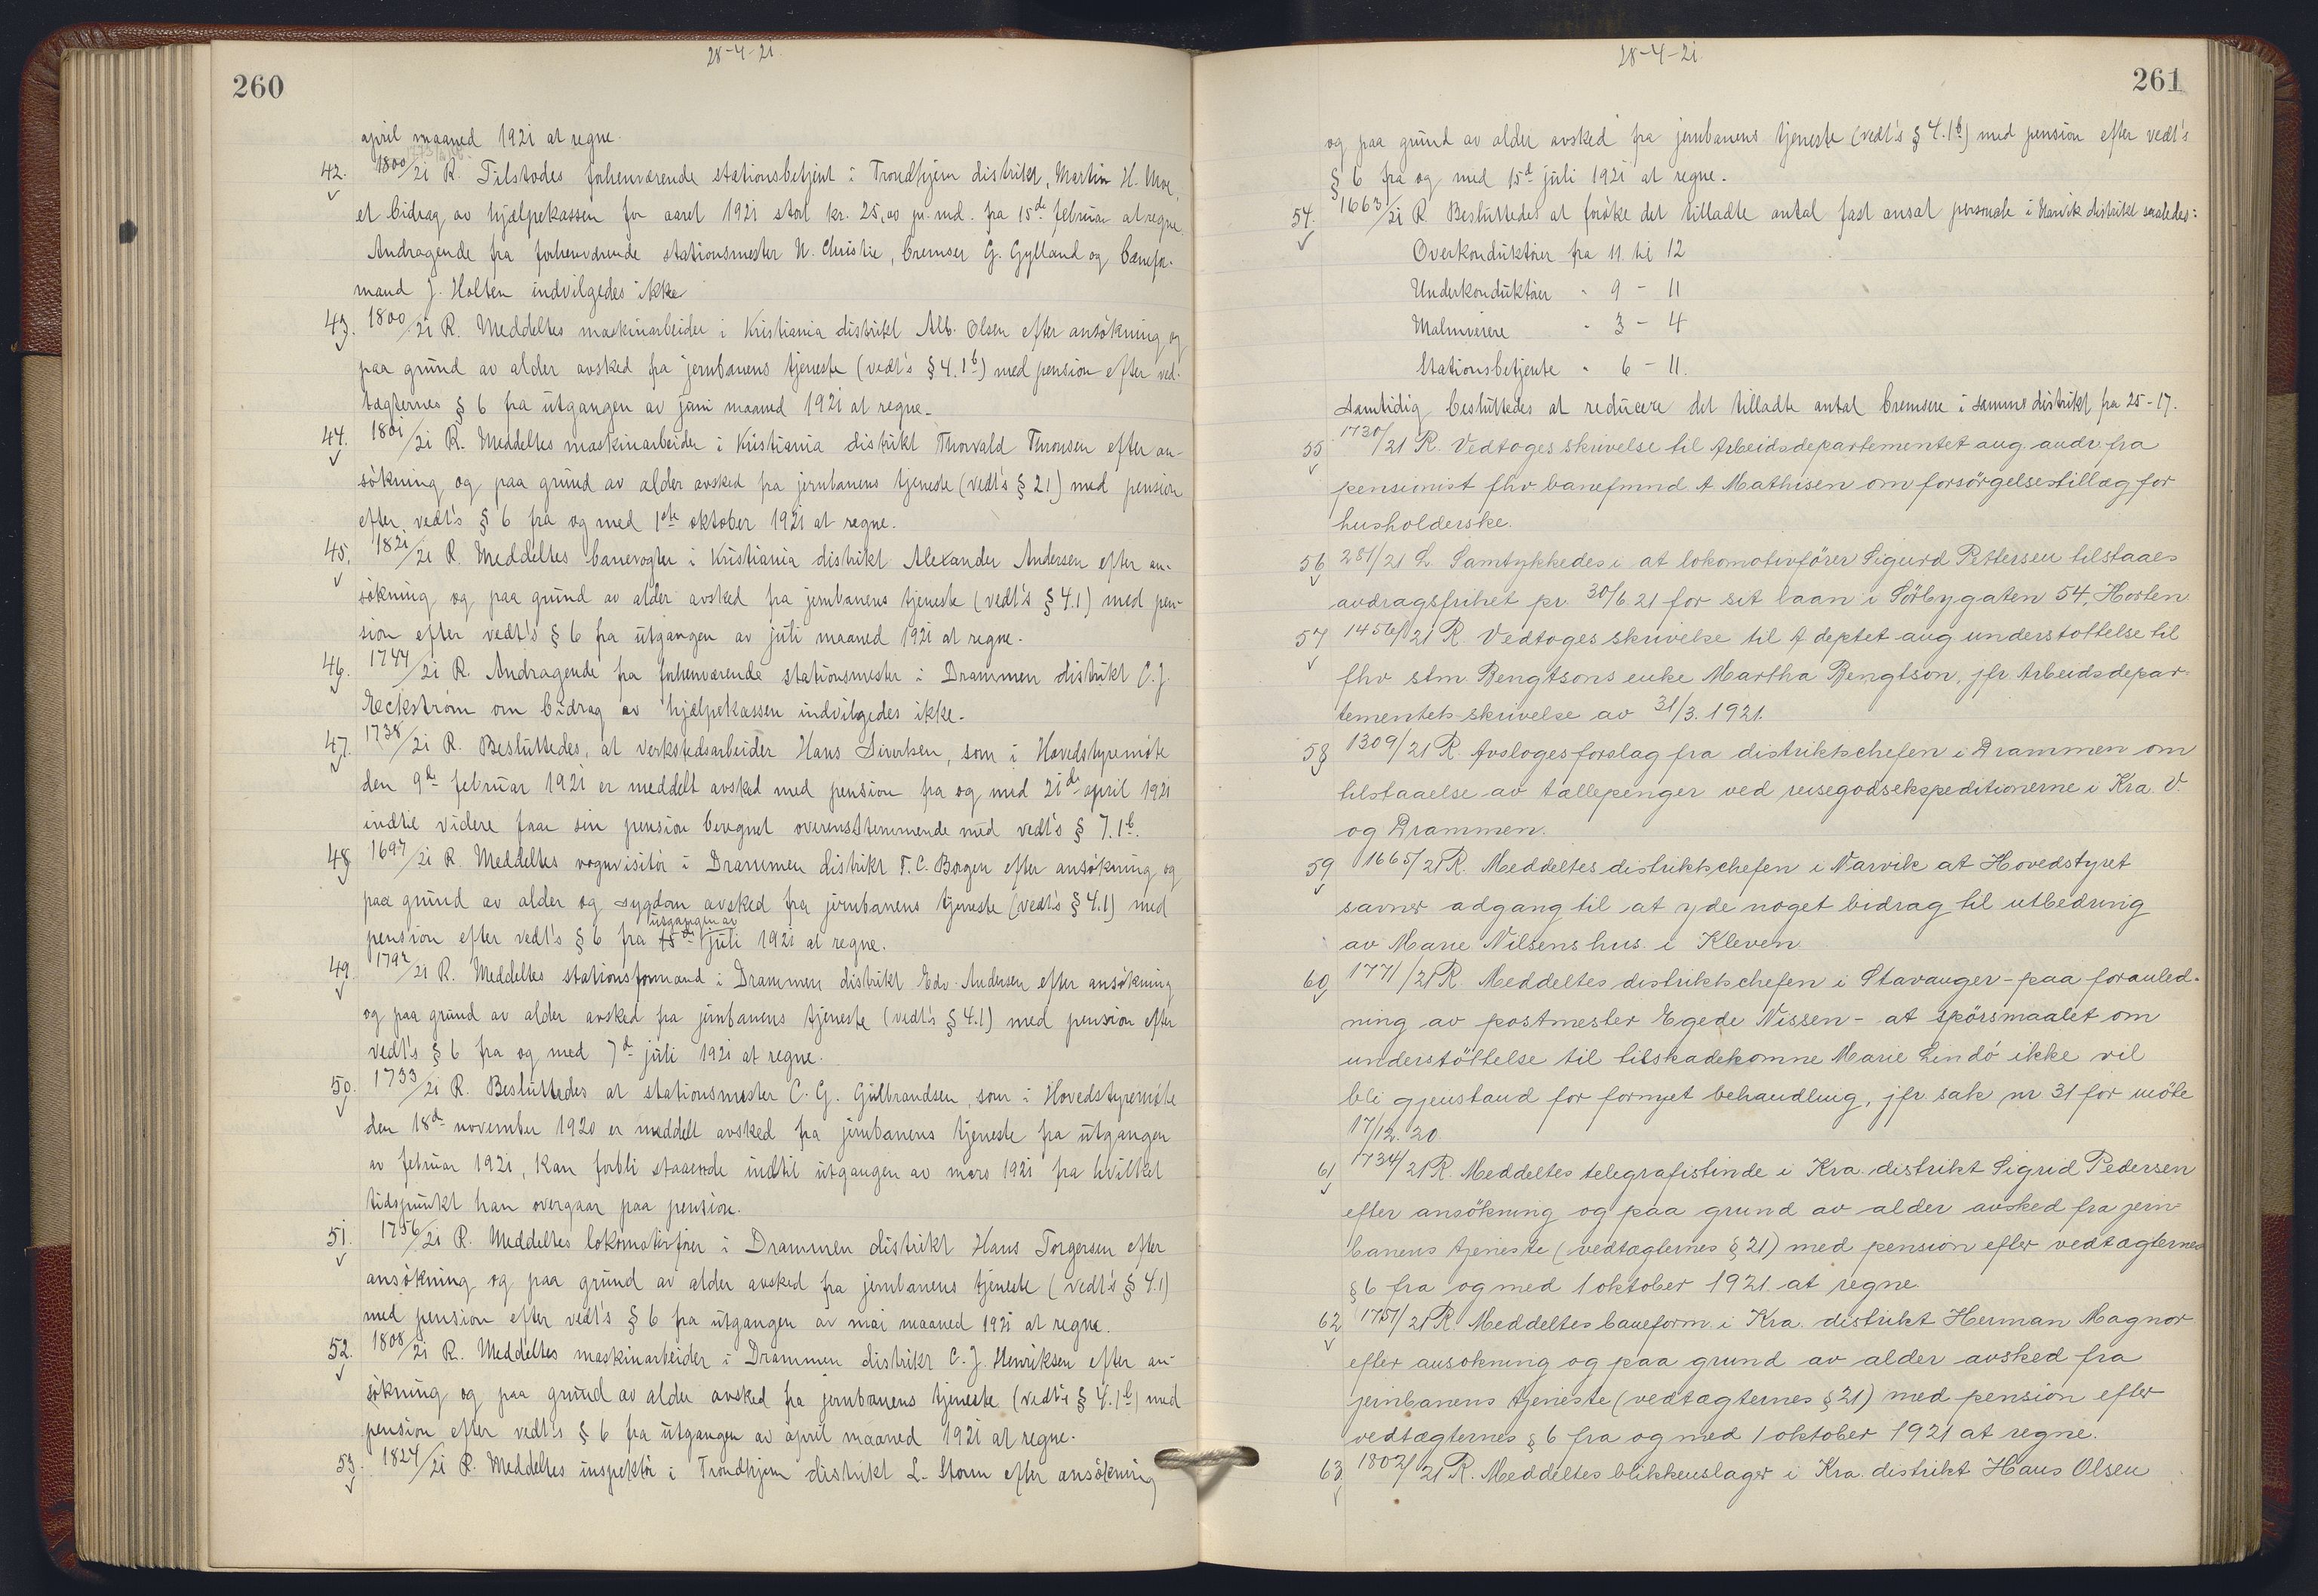 28-4-21.
260
april maaned 1921 at regne.
42. 1800/21 R. Tilstodes forhenværende stationsbetjent i Trondhjem distrikt, Martin H. Moe,
et bidrag av hjælpekassen for aaret 1921 stort kr. 25,00 pr. md. fra 15de februar at regne.
Andragende fra forhenværende stationsmester N. Christie, bremser G. Gylland og banefor-
mand J. Holten indvilgedes ikke
43. 1800/21 R. Meddeltes maskinarbeider i Kristiania distrikt Alb. Olsen efter ansökning og
paa grund av alder avsked fra jernbanens tjeneste (vedt's § 4.1b) med pension efter ved-
tægternes § 6 fra utgangen av juni maaned 1921 at regne.
44. 1801/21 R. Meddeltes maskinarbeider i Kristiania distrikt Thorvald Thronsen efter an-
sökning og paa grund av alder avsked fra jernbanens tjeneste (vedt's § 21) med pension
efter vedt's § 6 fra og med 1ste oktober 1921 at regne.
45. 1821/21 R. Meddeltes banevogter i Kristiania distrikt Alexander Andersen efter an-
sökning og paa grund av alder avsked fra jernbanens tjeneste (vedt's § 4.1) med pen-
sion efter vedt's § 6 fra utgangen av juli maaned 1921 at regne.
46. 1744/21 R. Andragende fra forhenværende stationsmester i Drammen distrikt C. J.
Eckström om bidrag av hjælpekassen indvilgedes ikke.
47. 1738/21 R. Besluttedes, at verkstedsarbeider Hans Sivertsen, som i Hovedstyremöte
den 9de februar 1921 er meddelt avsked med pension fra og med 21de april 1921
indtil videre faar sin pension beregnet overensstemmende med vedt's § 7.1b.
48. 1697/21 R. Meddeltes vognvisitör i Drammen distrikt F. C. Borgen efter ansökning og
paa grund av alder og sygdom avsked fra jernbanens tjeneste (vedt's § 4.1) med
pension efter vedt's § 6 fra 15de utgangen av juli 1921 at regne.
49. 1792/21 R. Meddeltes stationsformand i Drammen distrikt Edv. Andersen efter ansökning
og paa grund av alder avsked fra jernbanens tjeneste (vedt's § 4.1) med pension efter
vedt's § 6 fra og med 7de juli 1921 at regne.
50. 1733/21 R. Besluttedes at stationsmester C. G. Gulbrandsen, som i Hovedstyremöte
den 18de november 1920 er meddelt avsked fra jernbanens tjeneste fra utgangen
av februar 1921, kan forbli staaende indtil utgangen av mars 1921 fra hvilket
tidspunkt han overgaar paa pension.
51. 1756/21 R. Meddeltes lokomotivförer i Drammen distrikt Hans Torgersen efter
ansökning og paa grund av alder avsked fra jernbanens tjeneste (vedt's § 4.1)
med pension efter vedt's § 6 fra utgangen av mai maaned 1921 at regne.
52. 1808/21 R. Meddeltes maskinarbeider i Drammen distrikt C. J. Henriksen efter an-
sökning og paa grund av alder avsked fra jernbanens tjeneste (vedt's § 4.1b) med
pension efter vedt's § 6 fra utgangen av april maaned 1921 at regne.
53. 1824/21 R. Meddeltes inspektör i Trondhjem distrikt L. Storm efter ansökning
28-4-21.
261
og paa grund av alder avsked fra jernbanens tjeneste (vedt's § 4.1b) med pension efter vedt's
§ 6 fra og med 15de juli 1921 at regne.
54. 1663/21 R Besluttedes at foröke det tilladte antal fast ansat personale i Narvik distrikt saaledes:
Overkonduktörer fra 11 til 12
Underkonduktörer " 9 - 11
Malmveiere " 3 - 4
Stationsbetjente " 6 - 11.
Samtidig besluttedes at reducere det tilladte antal bremsere i samme distrikt fra 25-17.
55 1730/21 R. Vedtoges skrivelse til Arbeidsdepartementet ang. andr. fra
pensionist fhv. banefmnd A Mathisen om forsörgelsestillæg for
husholderske.
56 281/21 L Samtykkedes i at lokomotivförer Sigurd Pettersen tilstaaes
avdragsfrihet pr. 30/6 21 for sit laan i Sörbygaten 54, Horten
57 1456/21 R. Vedtoges skrivelse til A deptet ang understöttelse til
fhv stm Bengtsons enke Martha Bengtson, jfr Arbeidsdepar-
tementets skrivelse av 31/3. 1921.
58 1309/21 R. Avsloges forslag fra distriktschefen i Drammen om
tilstaaelse av tællepenger ved reisegodsekspeditionerne i Kra. V.
og Drammen.
59 1665/21 R. Meddeltes distriktschefen i Narvik at Hovedstyret
savner adgang til at yde noget bidrag til utbedring
av Marie Nilsens hus i Kleven
60 1771/21 R. Meddeltes distriktschefen i Stavanger - paa foranled-
ning av postmester Egede Nissen - at spörsmaalet om
understöttelse til tilskadekomne Marie Lindö ikke vil
bli gjenstand for fornyet behandling, jfr sak nr 31 for möte
17/12. 20.
61 1734/21 R. Meddeltes telegrafistinde i Kra. distrikt Sigrid Pedersen
efter ansökning og paa grund av alder avsked fra jern-
banens tjeneste (vedtægternes § 21) med pension efter vedtægternes
§ 6 fra og med 1 oktober 1921. at regne.
62 1757/21 R. Meddeltes baneform. i Kra. distrikt Herman Magnor
efter ansökning og paa grund av alder avsked fra
jernbanens tjeneste (vedtægternes § 21) med pension efter
vedtægternes § 6 fra og med 1 oktober 1921 at regne.
63 1802/21 R. Meddeltes blikkenslager i Kra. distrikt Hans Olsen